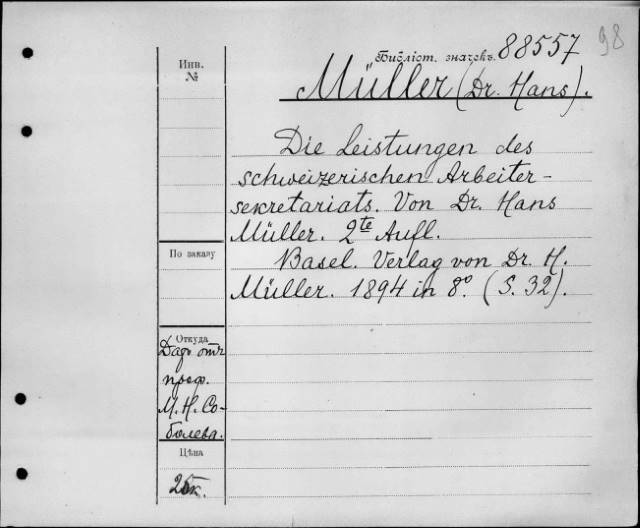 98
Библіот. значекъ. 88557
Инв.
№
Müller (Dr. Hans).
Die Leistungen des
schweizerischen Arbeiter-
sekretariats. Von Dr. Hans
Müller. 2te Aufl.
По заказу
Basel. Verlag von Dr. H.
Müller. 1894 in 8º. (S. 32).
Откуда
Даръ отъ
проф.
М. Н. Со-
болева.
Цѣна
25к.